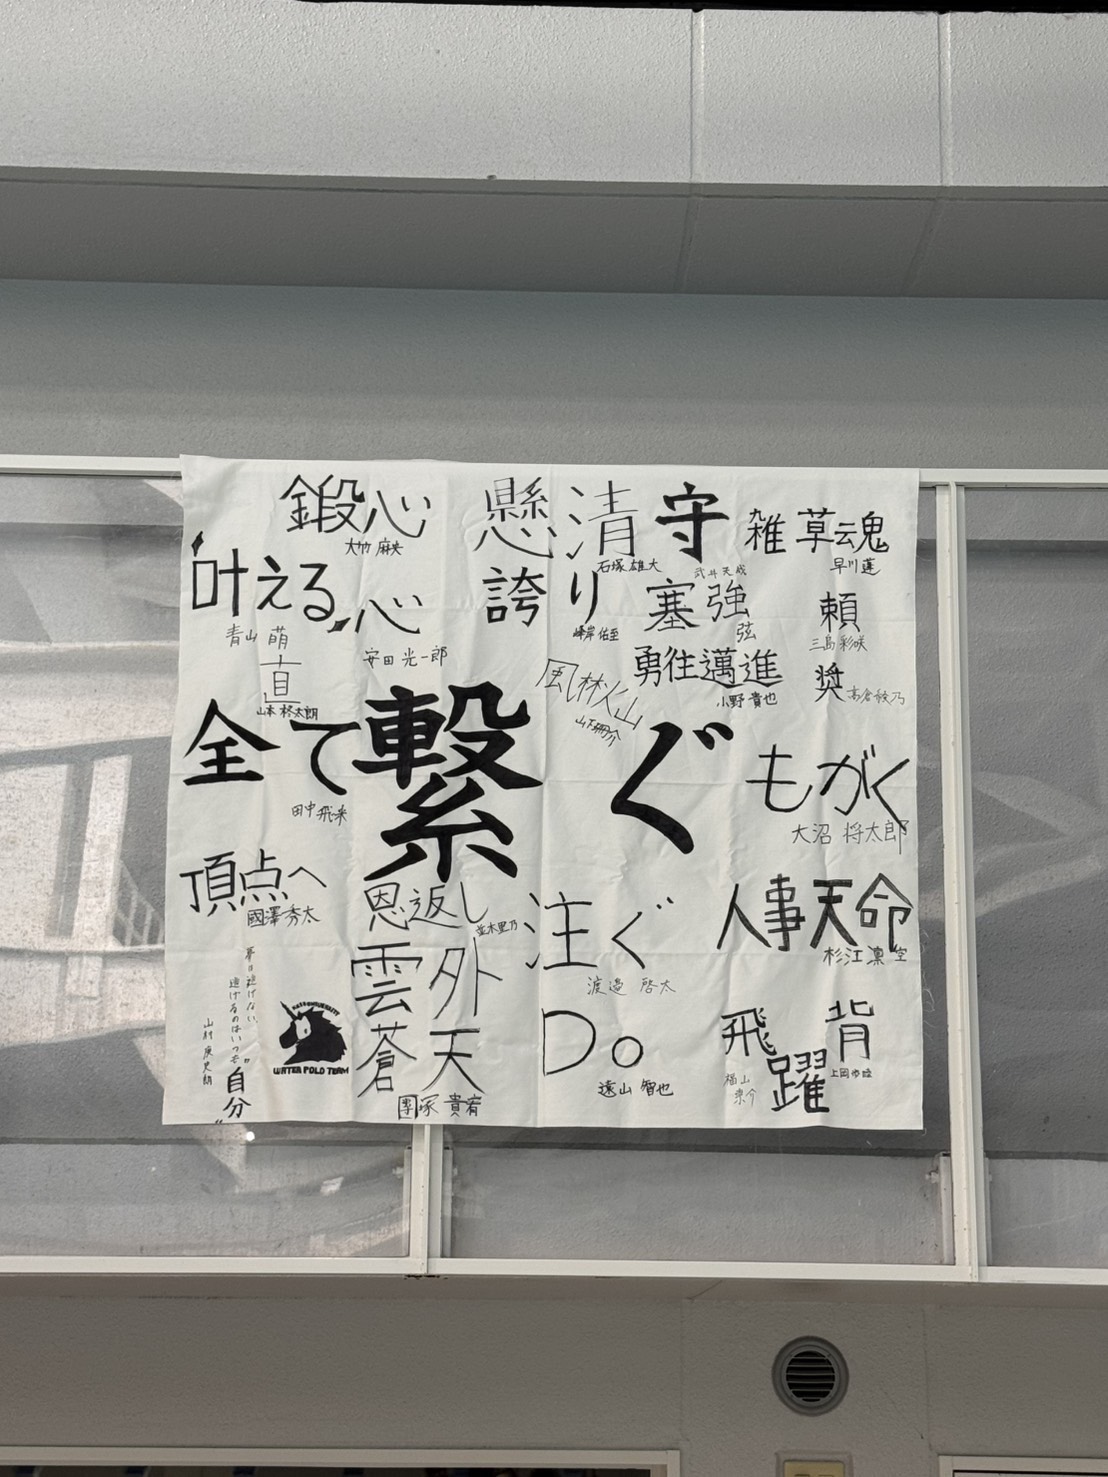 鍛心
大竹 麻央
懸
清
石塚 雄大
守
武井 天成
雑草魂
早川 蓮
"叶える"
青山 萌
心
安田 光一郎
誇り
峰岸 佑至
塞
強
弦
頼
三島 彩咲
直
山本 柊太朗
風林火山
勇往邁進
小野 貴也
奨
高倉 紋乃
全て繋ぐ
田中 飛来
もがく
大沼 将太郎
頂点へ
國澤 秀太
恩返し
並木 里乃
注ぐ
渡邉 啓太
人事天命
杉江 凛空
夢は逃げない、
逃げるのはいつも"自分"
WATER POLO TEAM
雲外
蒼天
團塚 貴宥
Do
遠山 智也
飛躍
福山
背